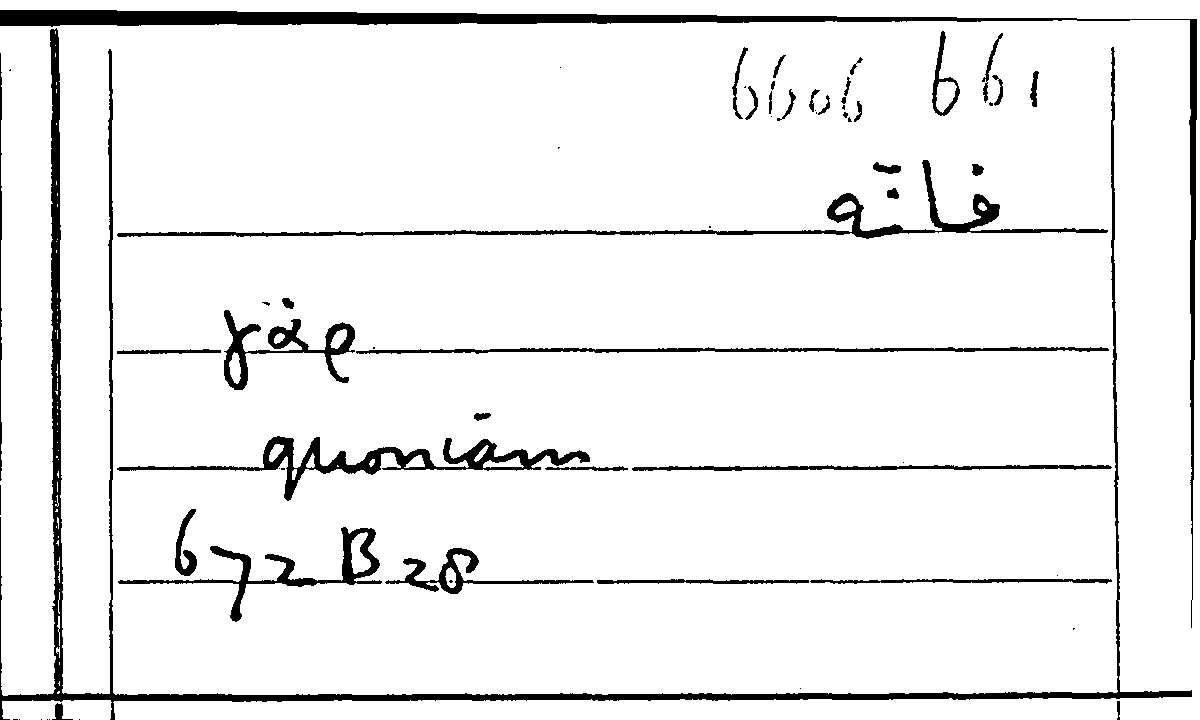 6606 661
فانّه
γὰρ
quoniam
672 B 28